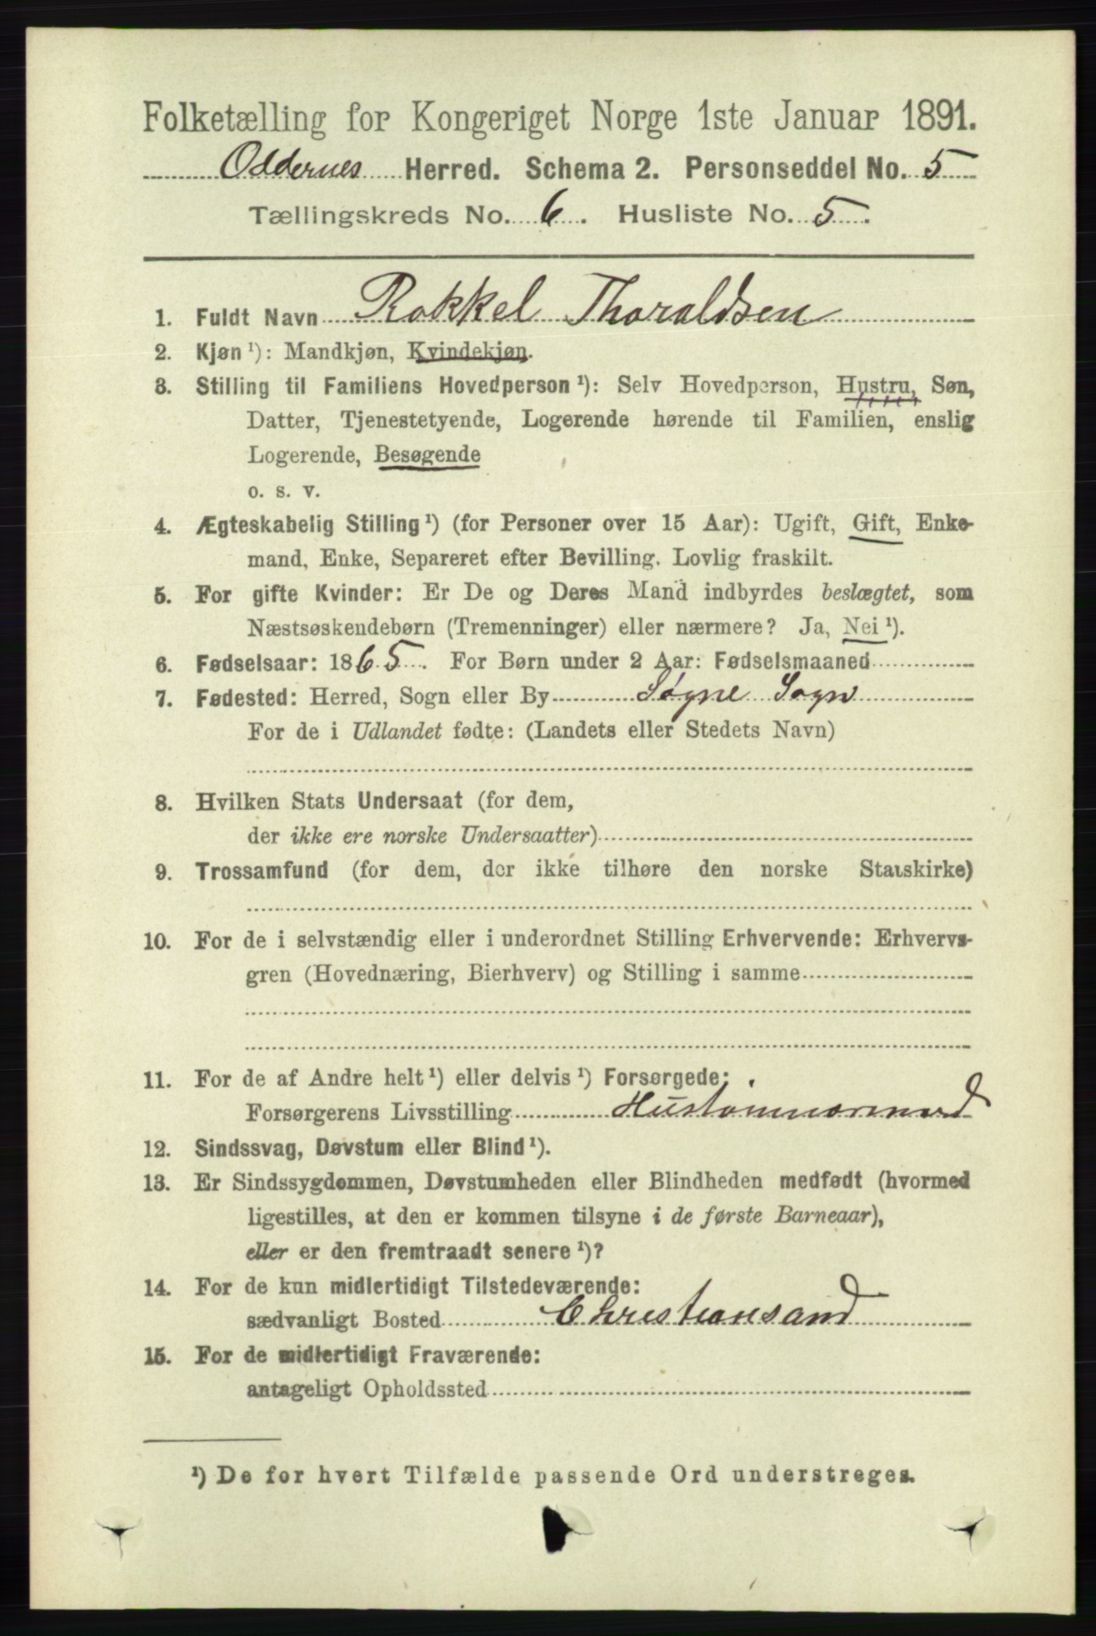 Folketælling for Kongeriget Norge 1ste Januar 1891.
Oddernes Herred. Schema 2. Personseddel No. 5
Tællingskreds No. 6. Husliste No. 5.
1. Fuldt Navn Rakkel Thoraldsen
2. Kjøn ¹): Mandkjøn, Kvindekjøn.
3. Stilling til Familiens Hovedperson ¹): Selv Hovedperson, Hustru, Søn,
Datter, Tjenestetyende, Logerende hørende til Familien, enslig
Logerende, Besøgende
o. s. v.
4. Ægteskabelig Stilling ¹) (for Personer over 15 Aar): Ugift, Gift, Enke-
mand, Enke, Separeret efter Bevilling. Lovlig fraskilt.
5. For gifte Kvinder: Er De og Deres Mand indbyrdes beslægtet, som
Næstsøskendebørn (Tremenninger) eller nærmere? Ja, Nei ¹).
6. Fødselsaar: 1865. For Børn under 2 Aar: Fødselsmaaned
7. Fødested: Herred, Sogn eller By Søgne Sogn
For de i Udlandet fødte: (Landets eller Stedets Navn)
8. Hvilken Stats Undersaat (for dem,
der ikke ere norske Undersaatter)
9. Trossamfund (for dem, der ikke tilhøre den norske Statskirke)
10. For de i selvstændig eller i underordnet Stilling Erhvervende: Erhvervs-
gren (Hovednæring, Bierhverv) og Stilling i samme
11. For de af Andre helt ¹) eller delvis ¹) Forsørgede:
Forsørgerens Livsstilling Hustømmermand
12. Sindssvag, Døvstum eller Blind ¹).
13. Er Sindssygdommen, Døvstumheden eller Blindheden medfødt (hvormed
ligestilles, at den er kommen tilsyne i de første Barneaar),
eller er den fremtraadt senere ¹)?
14. For de kun midlertidigt Tilstedeværende:
sædvanligt Bosted Christiansand
15. For de midlertidigt Fraværende:
antageligt Opholdssted
¹) De for hvert Tilfælde passende Ord understreges.